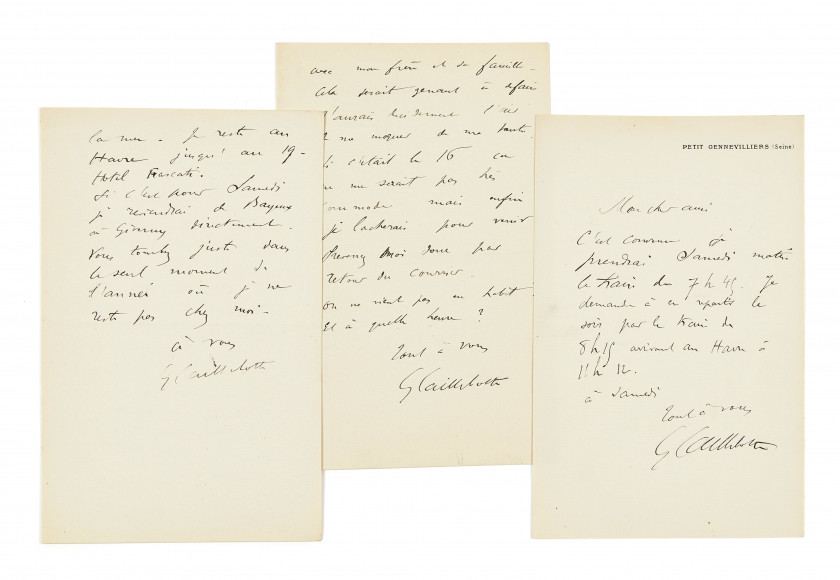 la mer - Je reste au
Havre jusqu'au 19 -
Hotel Frascati.
Si c'est pour Samedi
je reviendrai de Bayeux
à Giverny directement.
Vous tombez juste dans
le seul moment de
l'année où je ne
reste pas chez moi -
à vous
G Caillebotte
avec mon frère et sa famille -
Cela serait genant à defaire
j'aurais
ne moquer de me
c'était le 16 ca
ne me serait pas très
commode mais enfin
je lacherais pour venir
Prevenez moi donc par
retour du courrier.
on ne vient pas en habit -
Et à quelle heure ?
Tout à vous
G Caillebotte
PETIT GENNEVILLIERS (Seine)
Mon cher ami
C'est convenu je
prendrai Samedi matin
le train de 7h45. Je
demande à en repartir le
soir par le train de
8h15 arrivant au Havre à
11h 12.
à Samedi
Tout à vous
G Caillebotte